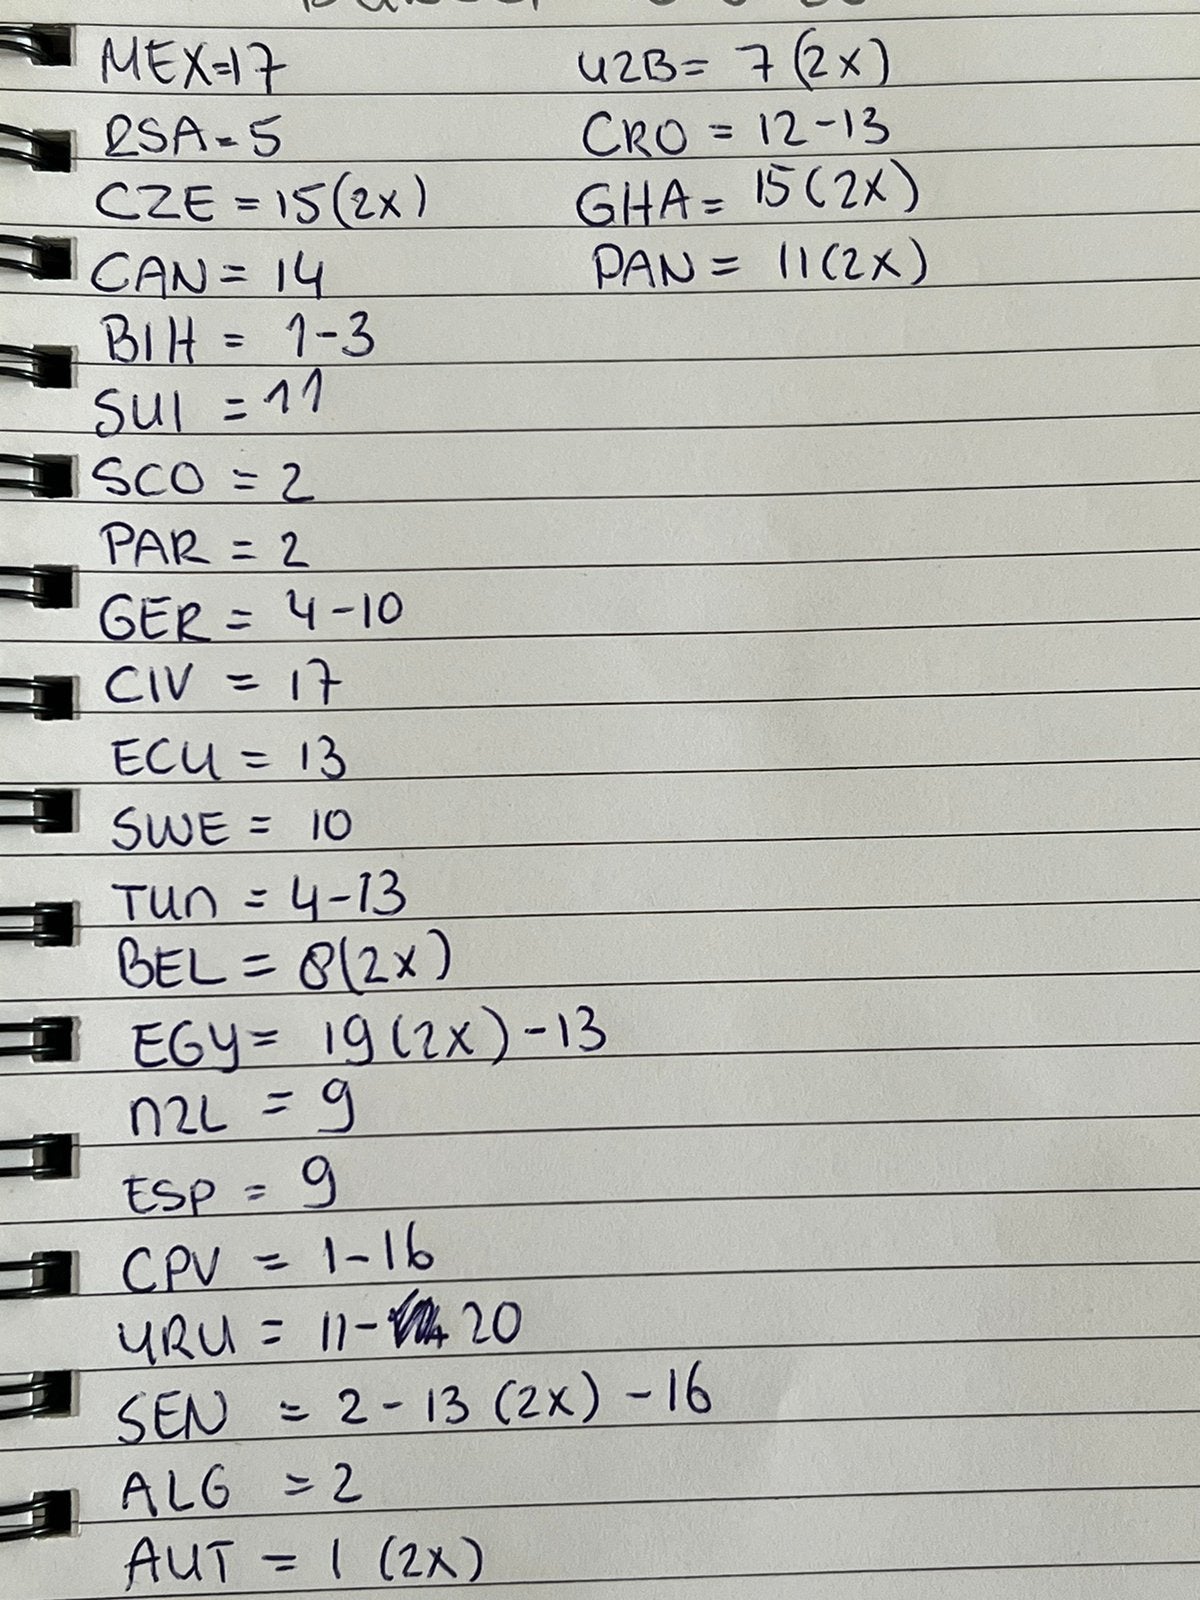 MEX=17
RSA=5
CZE=15(2x)
CAN=14
BIH=1-3
SUI=11
SCO=2
PAR=2
GER=4-10
CIV=17
ECU=13
SWE=10
TUN=4-13
BEL=8(2x)
EGY=19(2x)-13
NZL=9
ESP=9
CPV=1-16
URU=11-20
SEN=2-13(2x)-16
ALG=2
AUT=1(2x)
UZB=7(2x)
CRO=12-13
GHA=15(2x)
PAN=11(2x)